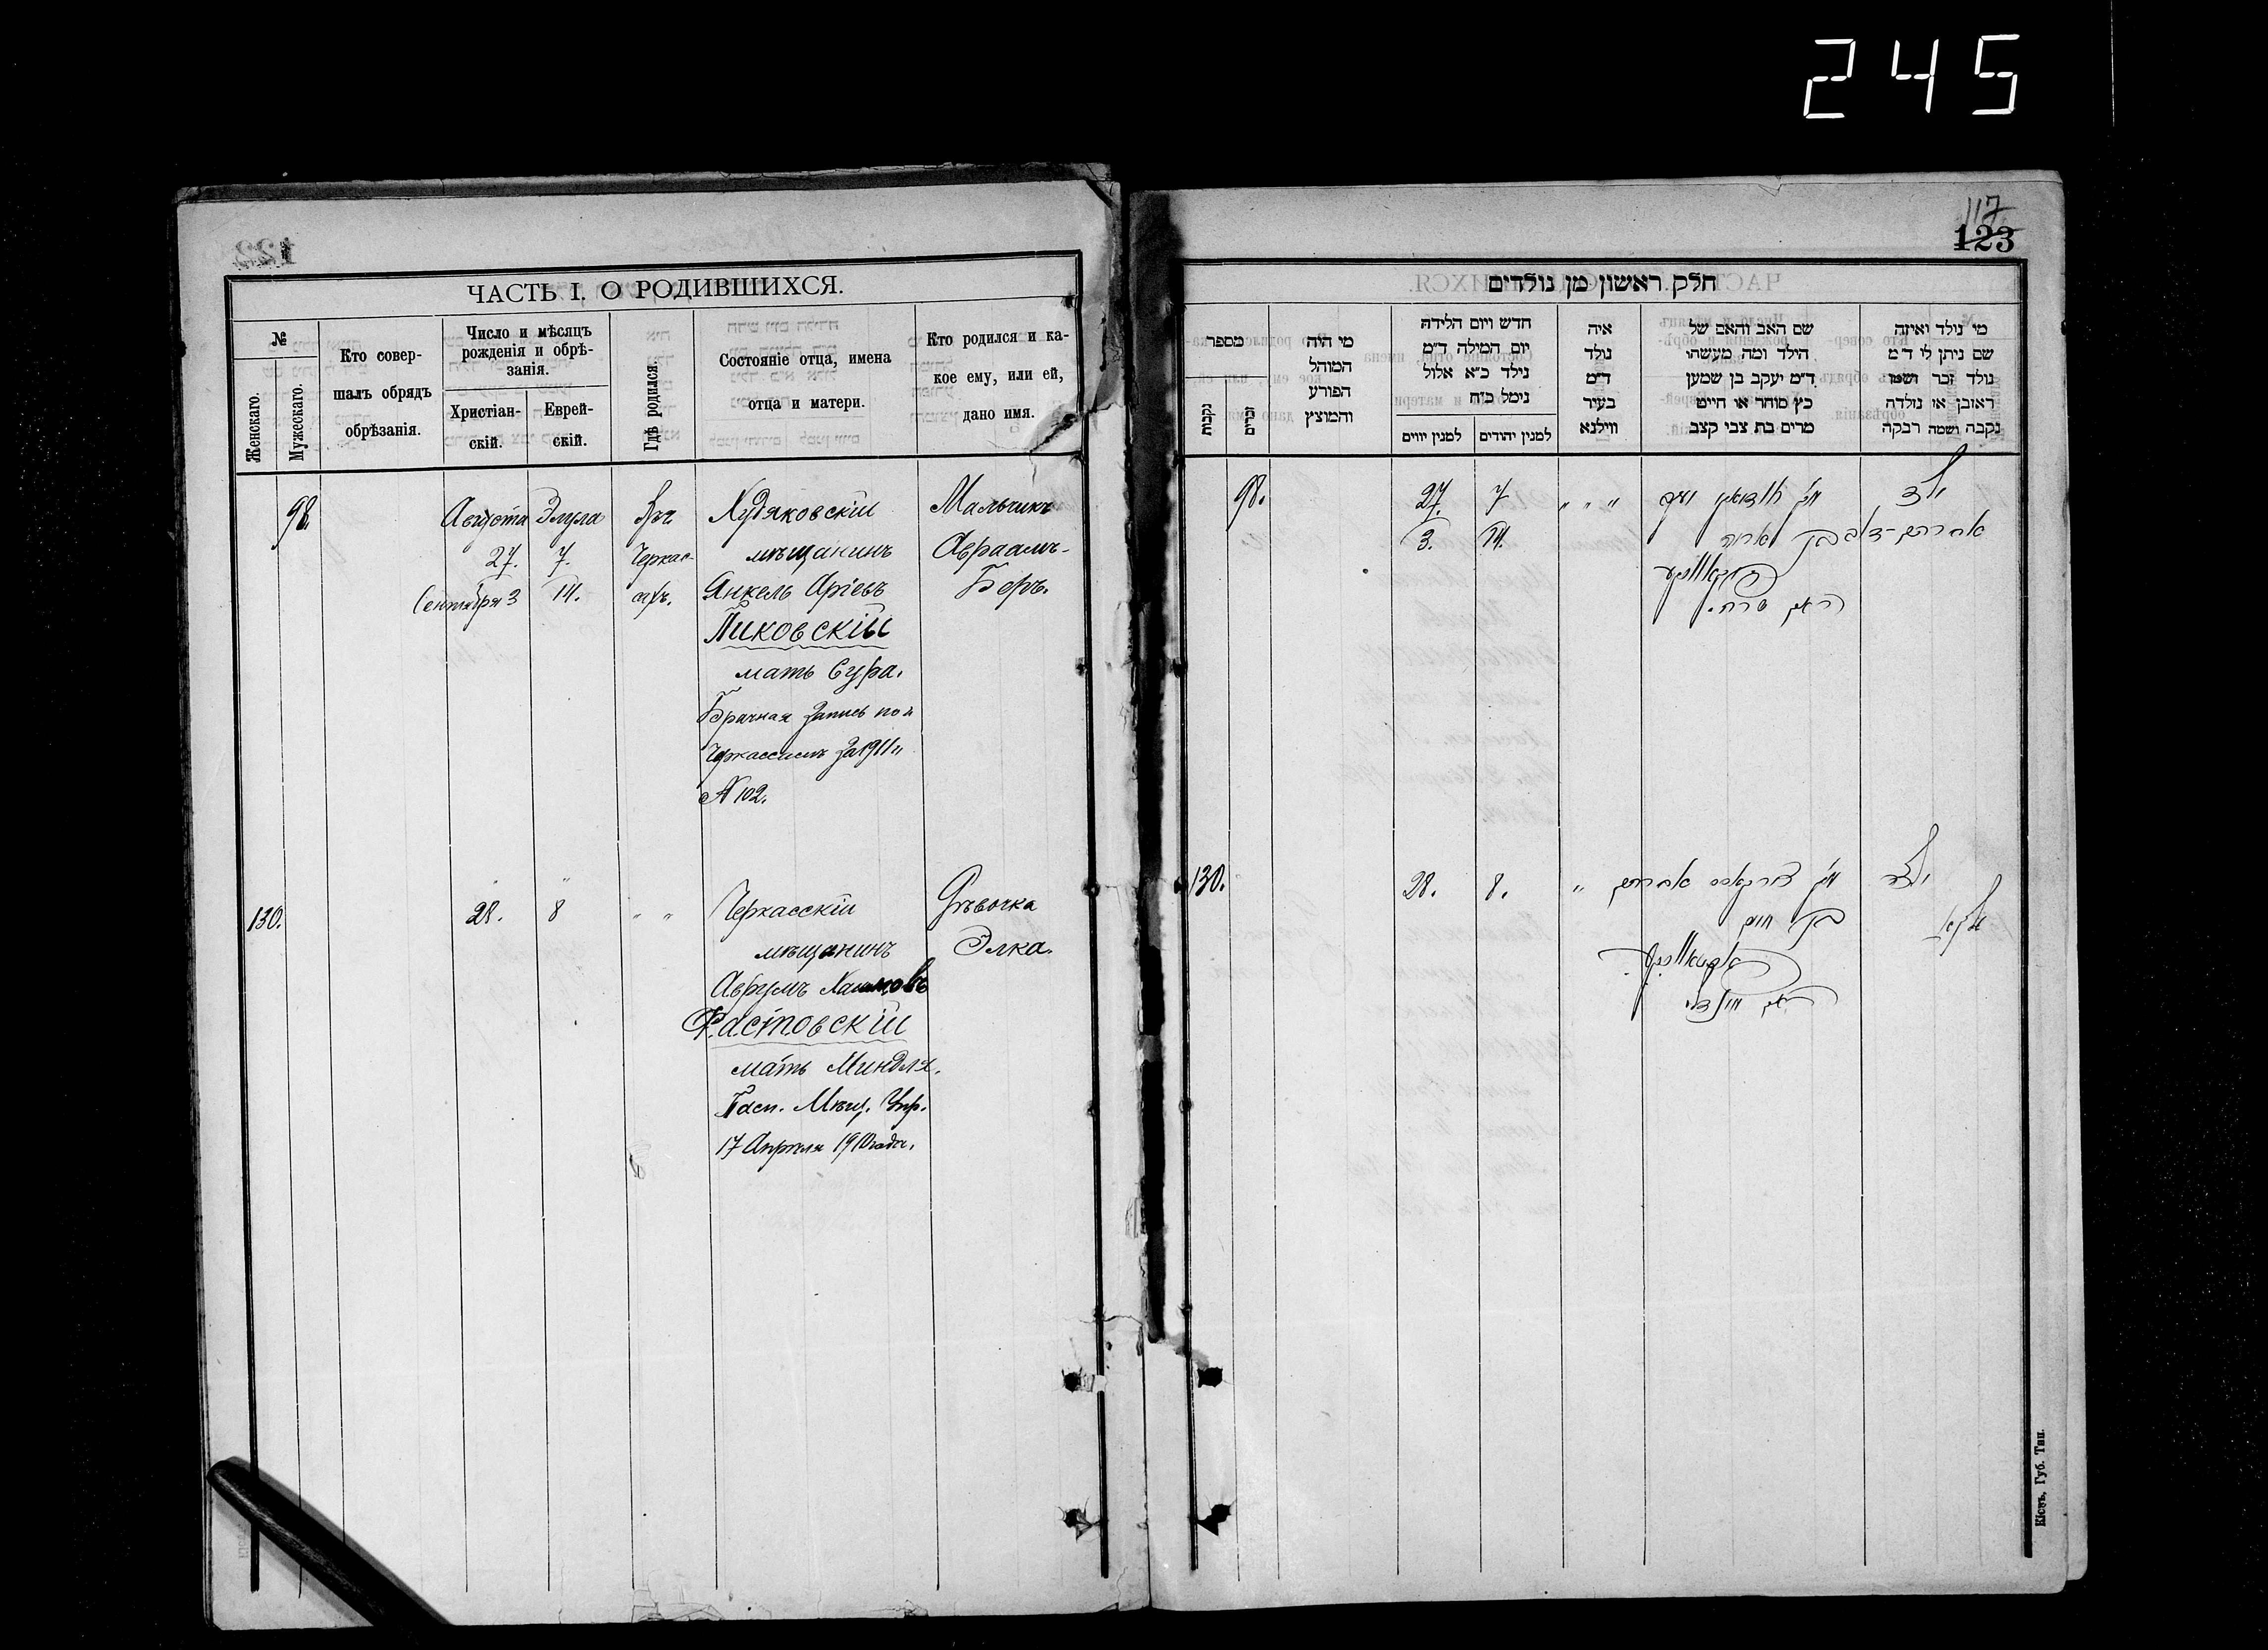 245
ЧАСТЬ I. О РОДИВШИХСЯ.
№
Женскаго.
Мужескаго.
Кто совер-
шалъ обрядъ
обрѣзанія.
Число и мѣсяцъ
рожденія и обрѣ-
занія.
Христіан-
скій.
Еврей-
скій.
Гдѣ родился.
Состояніе отца, имена
отца и матери.
Кто родился и ка-
кое ему, или ей,
дано имя.
98.
Августа
27.
Сентября 3
Элула
7.
14.
Черкас-
Худяковскій
мѣщанинъ
Янкель Аріевъ
Пиковскій
мать Сура.
Брачная запись по г.
Черкассамъ за 1911 г.
№ 102.
Мальчикъ
Авраамъ-
Беръ.
130.
28.
8
" "
Черкасскій
мѣщанинъ
Аврумъ Хаимовъ
Фастовскій
мать Миндля.
Пасп. Мѣщ. Упр.
17 Апрѣля 1910 года.
Дѣвочка
Элка.
117
123
חלק ראשון מן נולדים
מי נולד ואיזה
שם ניתן לו ד״מ
נולד זכר ושמו
ראובן או נולדה
נקבה ושמה רבקה
שם האב והאם של
הילד ומה מעשהו
ד״מ יעקב בן שמען
כץ סוחר או חייט
מרים בת צבי קצב
איה
נולד
ד״מ
בעיר
ווילנא
חדש ויום הלידה
יום המילה ד״מ
נילד כ״א אלול
נימל כ״ח
למנין יהודים
למנין יוונים
מי היה
המוהל
הפורע
והמוצץ
מספר
זכרים
נקבות
98.
27.
3.
7
14.
" " "
ילד
אברהם-דוב
בן
האם שרה.
130.
28.
8.
"
אברהם
בן חיים
Кіевъ, Губ. Тип.